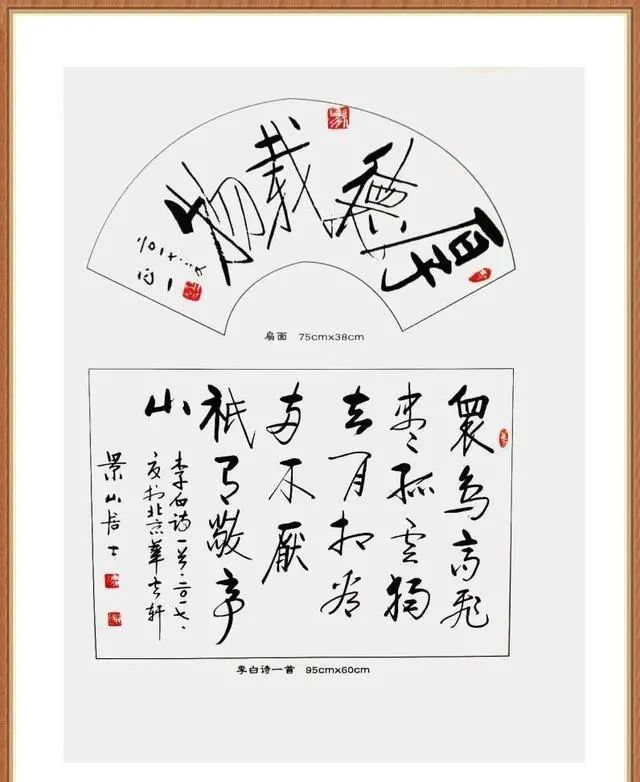 厚德載物
扇面 75cmx38cm
眾鳥高飛
盡孤雲獨
去閒相看
兩不厭
祇有敬亭
山
李白詩一首二〇一七
夏於北京華軒
景山居士
李白诗一首 95cmx60cm